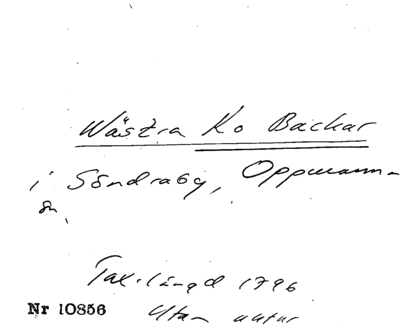 Wästra Ko Backar
i Söndraby, Oppmann-
sn.
Tax. längd 1796
Nr 10856 Utan autor